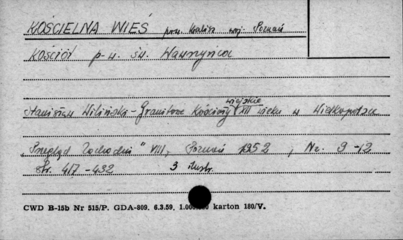 KOŚCIELNA WIEŚ pow. Kalisz woj. Poznań
Kościół p.w. św. Wawrzyńca
wiejskie
Stanisława Wilińska - Granitowe Kościoły XII wieku w Wielkopolsce
"Przegląd Zachodni" VIII, Poznań 1952, Nr. 9-12
Str. 417-432 3 ilustr.
CWD B-15b Nr 515/P. GDA-809. 6.3.59. 1.00 karton 180/V.